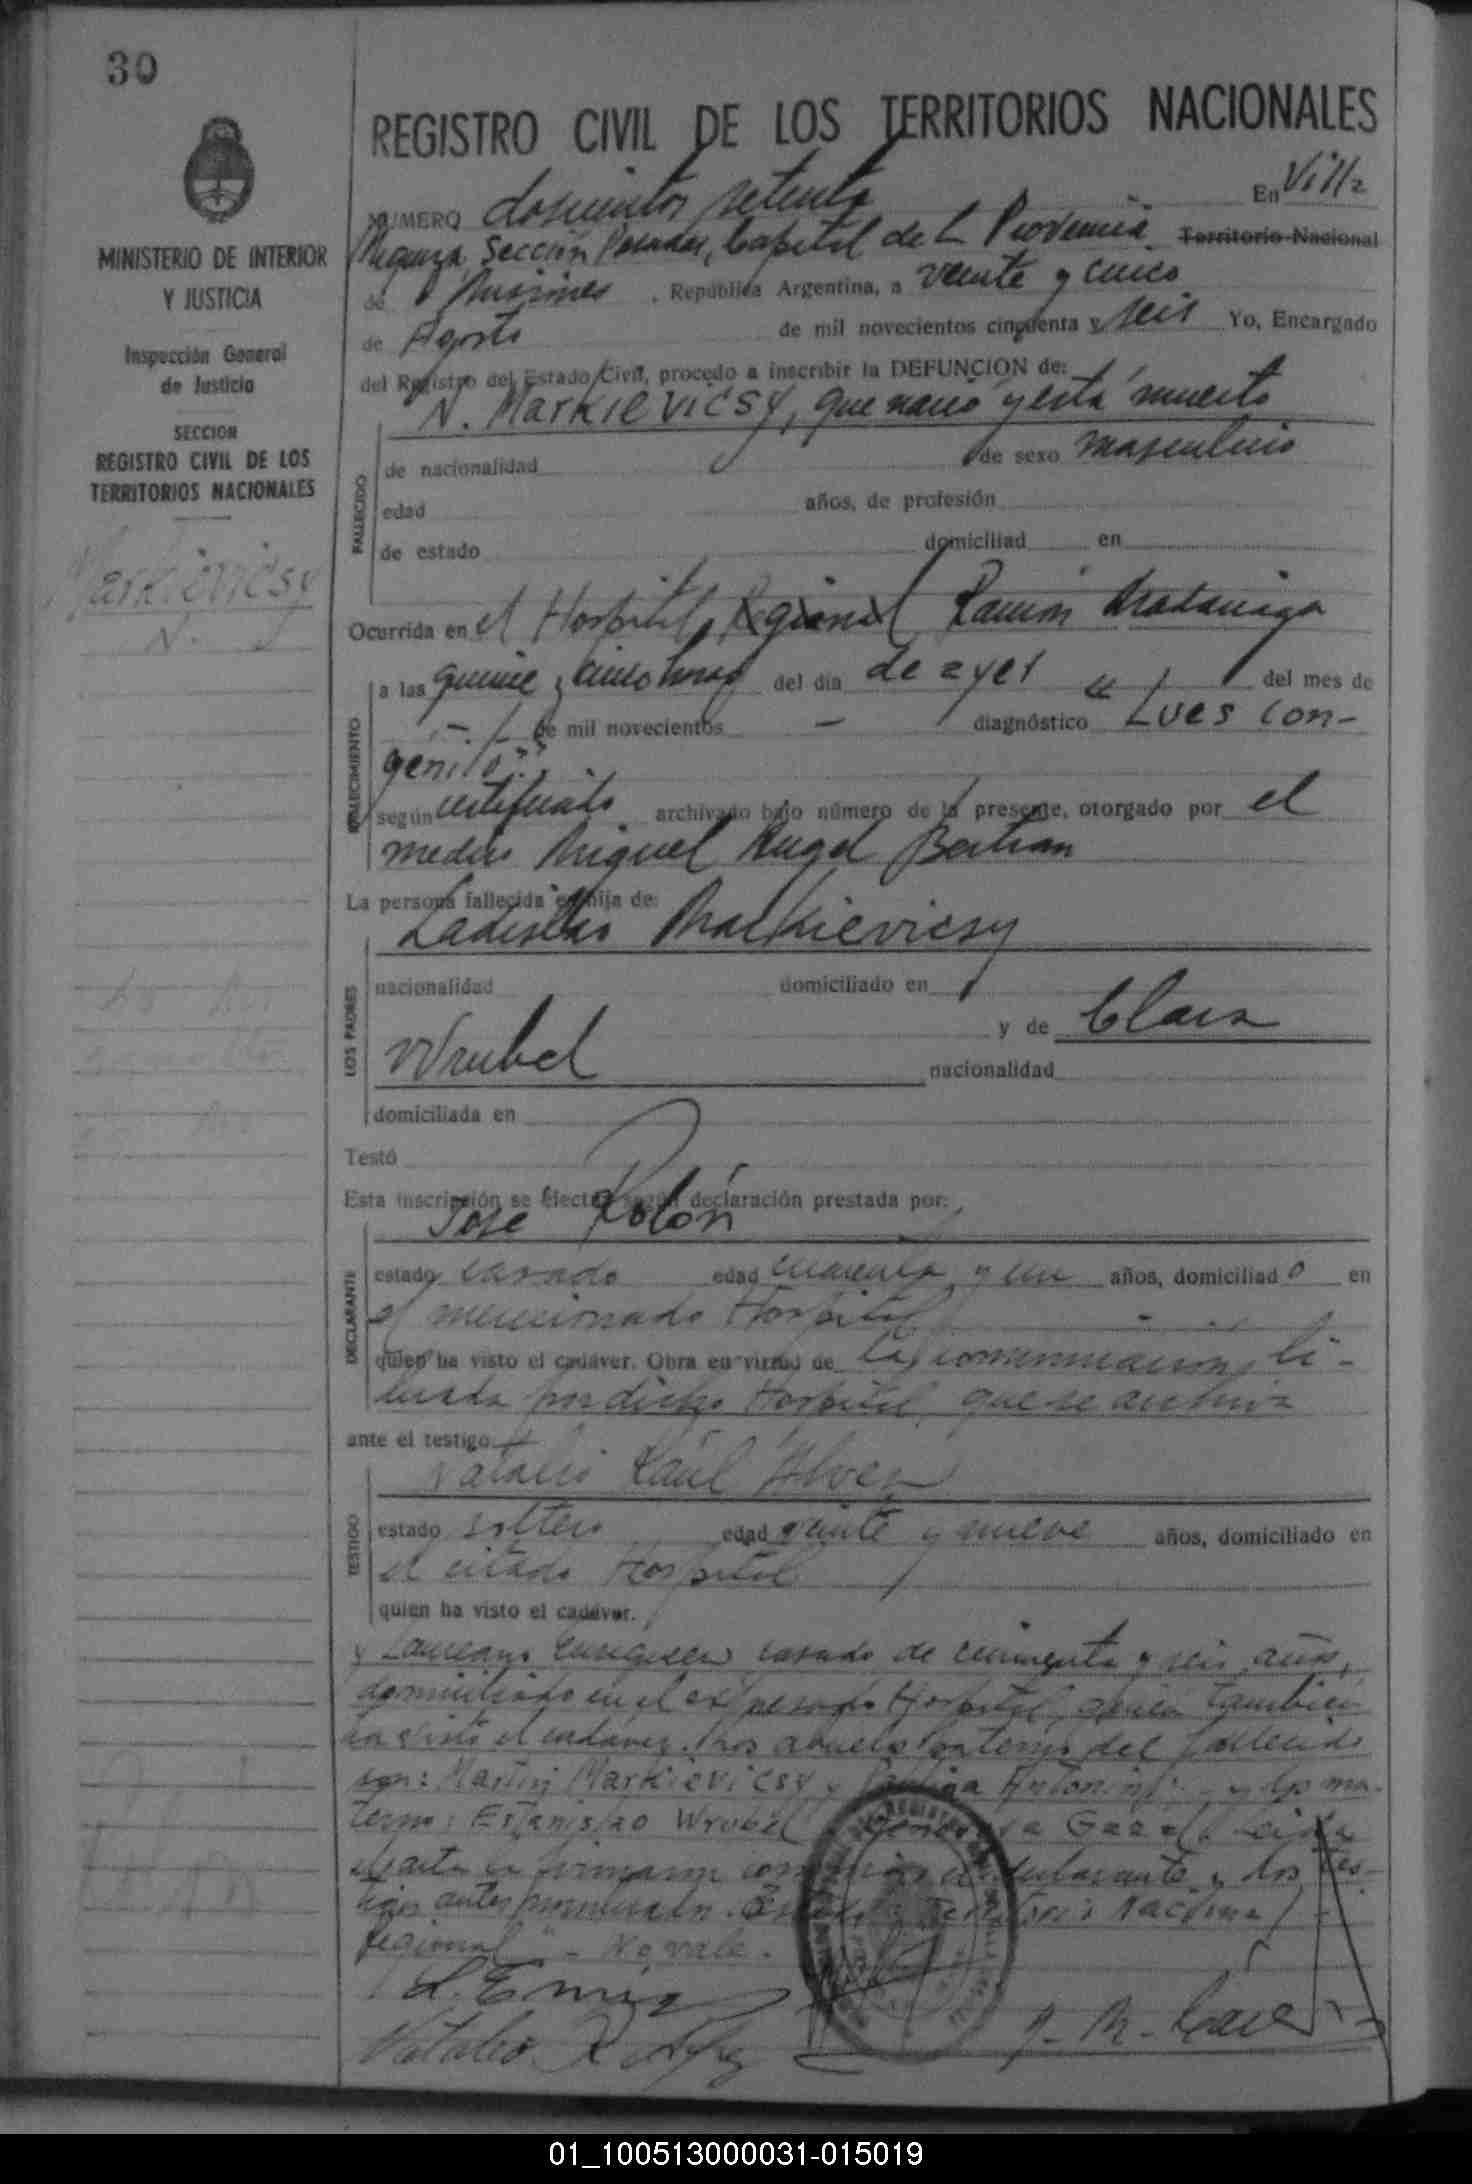 30
REGISTRO CIVIL DE LOS TERRITORIOS NACIONALES
MINISTERIO DE INTERIOR
Y JUSTICIA
Inspección General
de Justicia
SECCION
REGISTRO CIVIL DE LOS
TERRITORIOS NACIONALES
Markievicsy
N.
NUMERO doscientos setenta En Villa
Sección Posadas, Capital de la Provincia Territorio Nacional
de Misiones, República Argentina, a veinte y cinco
de Agosto de mil novecientos cincuenta y seis Yo, Encargado
del Registro del Estado Civil, procedo a inscribir la DEFUNCION de:
N. Markievicsy, que nació y está muerto
FALLECIDO
de nacionalidad de sexo masculino
edad años, de profesión
de estado domiciliad en
Ocurrida en el Hospital Regional Ramón Madariaga
FALLECIMIENTO
a las quince y cinco horas del día de ayer del mes de
de mil novecientos — diagnóstico "Lues con-
génito"
según certificado archivado bajo número de la presente, otorgado por el
médico Miguel Angel Bertran
La persona fallecida es hija de:
LOS PADRES
Ladislao Markievicsy
nacionalidad domiciliado en
y de Clara
Wrubel nacionalidad
domiciliada en
Testó
Esta inscripción se efectúa según declaración prestada por:
DECLARANTE
José Rolón
estado casado edad cuarenta y un años, domiciliado en
el mencionado Hospital
quien ha visto el cadáver. Obra en virtud de la comunicación li-
brada por dicho Hospital, que se archiva
ante el testigo
TESTIGO
Natalio Raúl
estado soltero edad veinte y nueve años, domiciliado en
el citado Hospital
quien ha visto el cadáver.
y Laureano casado de cincuenta y seis años,
domiciliado en el expresado Hospital, quien también
ha visto el cadáver. Los abuelos paternos del fallecido
son: Martin Markievicsy y y los ma-
ternos: Estanislao Wrubel
el acta la firmaron conmigo el declarante y los tes-
tigos antes nombrados. Territorio Nacional
Regional" - No vale.
01_100513000031-015019